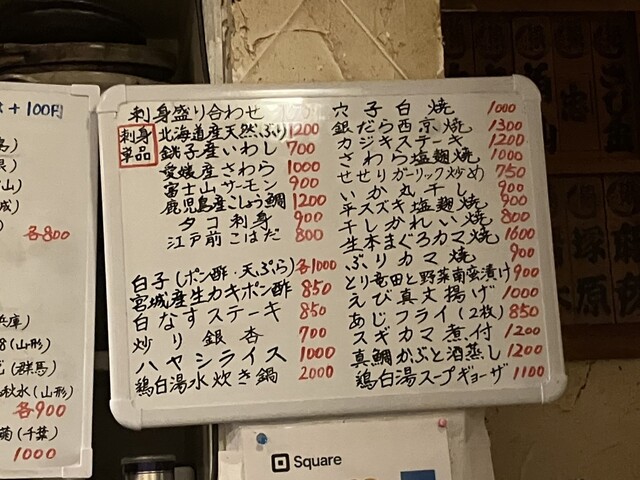 +100円
各800
(山形)
(群馬)
秋水(山形)
各900
(千葉)
1000
刺身盛り合わせ
刺身単品
北海道産天然ぶり 1200
銚子産いわし 700
愛媛産さわら 1000
富士山サーモン 900
鹿児島産こしょう鯛 1200
タコ刺身 900
江戸前こはだ 800
白子(ポン酢・天ぷら)各1000
宮城産生カキポン酢 850
白なすステーキ 850
炒り銀杏 700
ハヤシライス 1000
鶏白湯水炊き鍋 2000
穴子白焼 1000
銀だら西京焼 1300
カジキステーキ 1200
さわら塩麹焼 1000
せせりガーリック炒め 750
いか丸干し 900
平スズキ塩麹焼 900
干しかれい焼 800
生本まぐろカマ焼 1600
ぶりカマ焼 900
とり竜田と野菜南蛮漬け 900
えび真丈揚げ 1000
あじフライ(2枚) 850
スギカマ煮付 1200
真鯛かぶと酒蒸し 1200
鶏白湯スープギョーザ 1100
Square